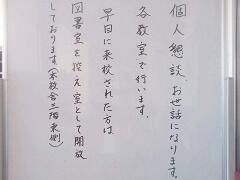 個人懇談、お世話になります。
各教室で行います。
早目に来校された方は
図書室を控え室として開放
しております(本校舎三階東側)